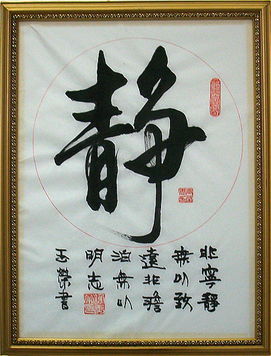 静
非寧静
無以致
遠非澹
泊無以
明志
玉榮書